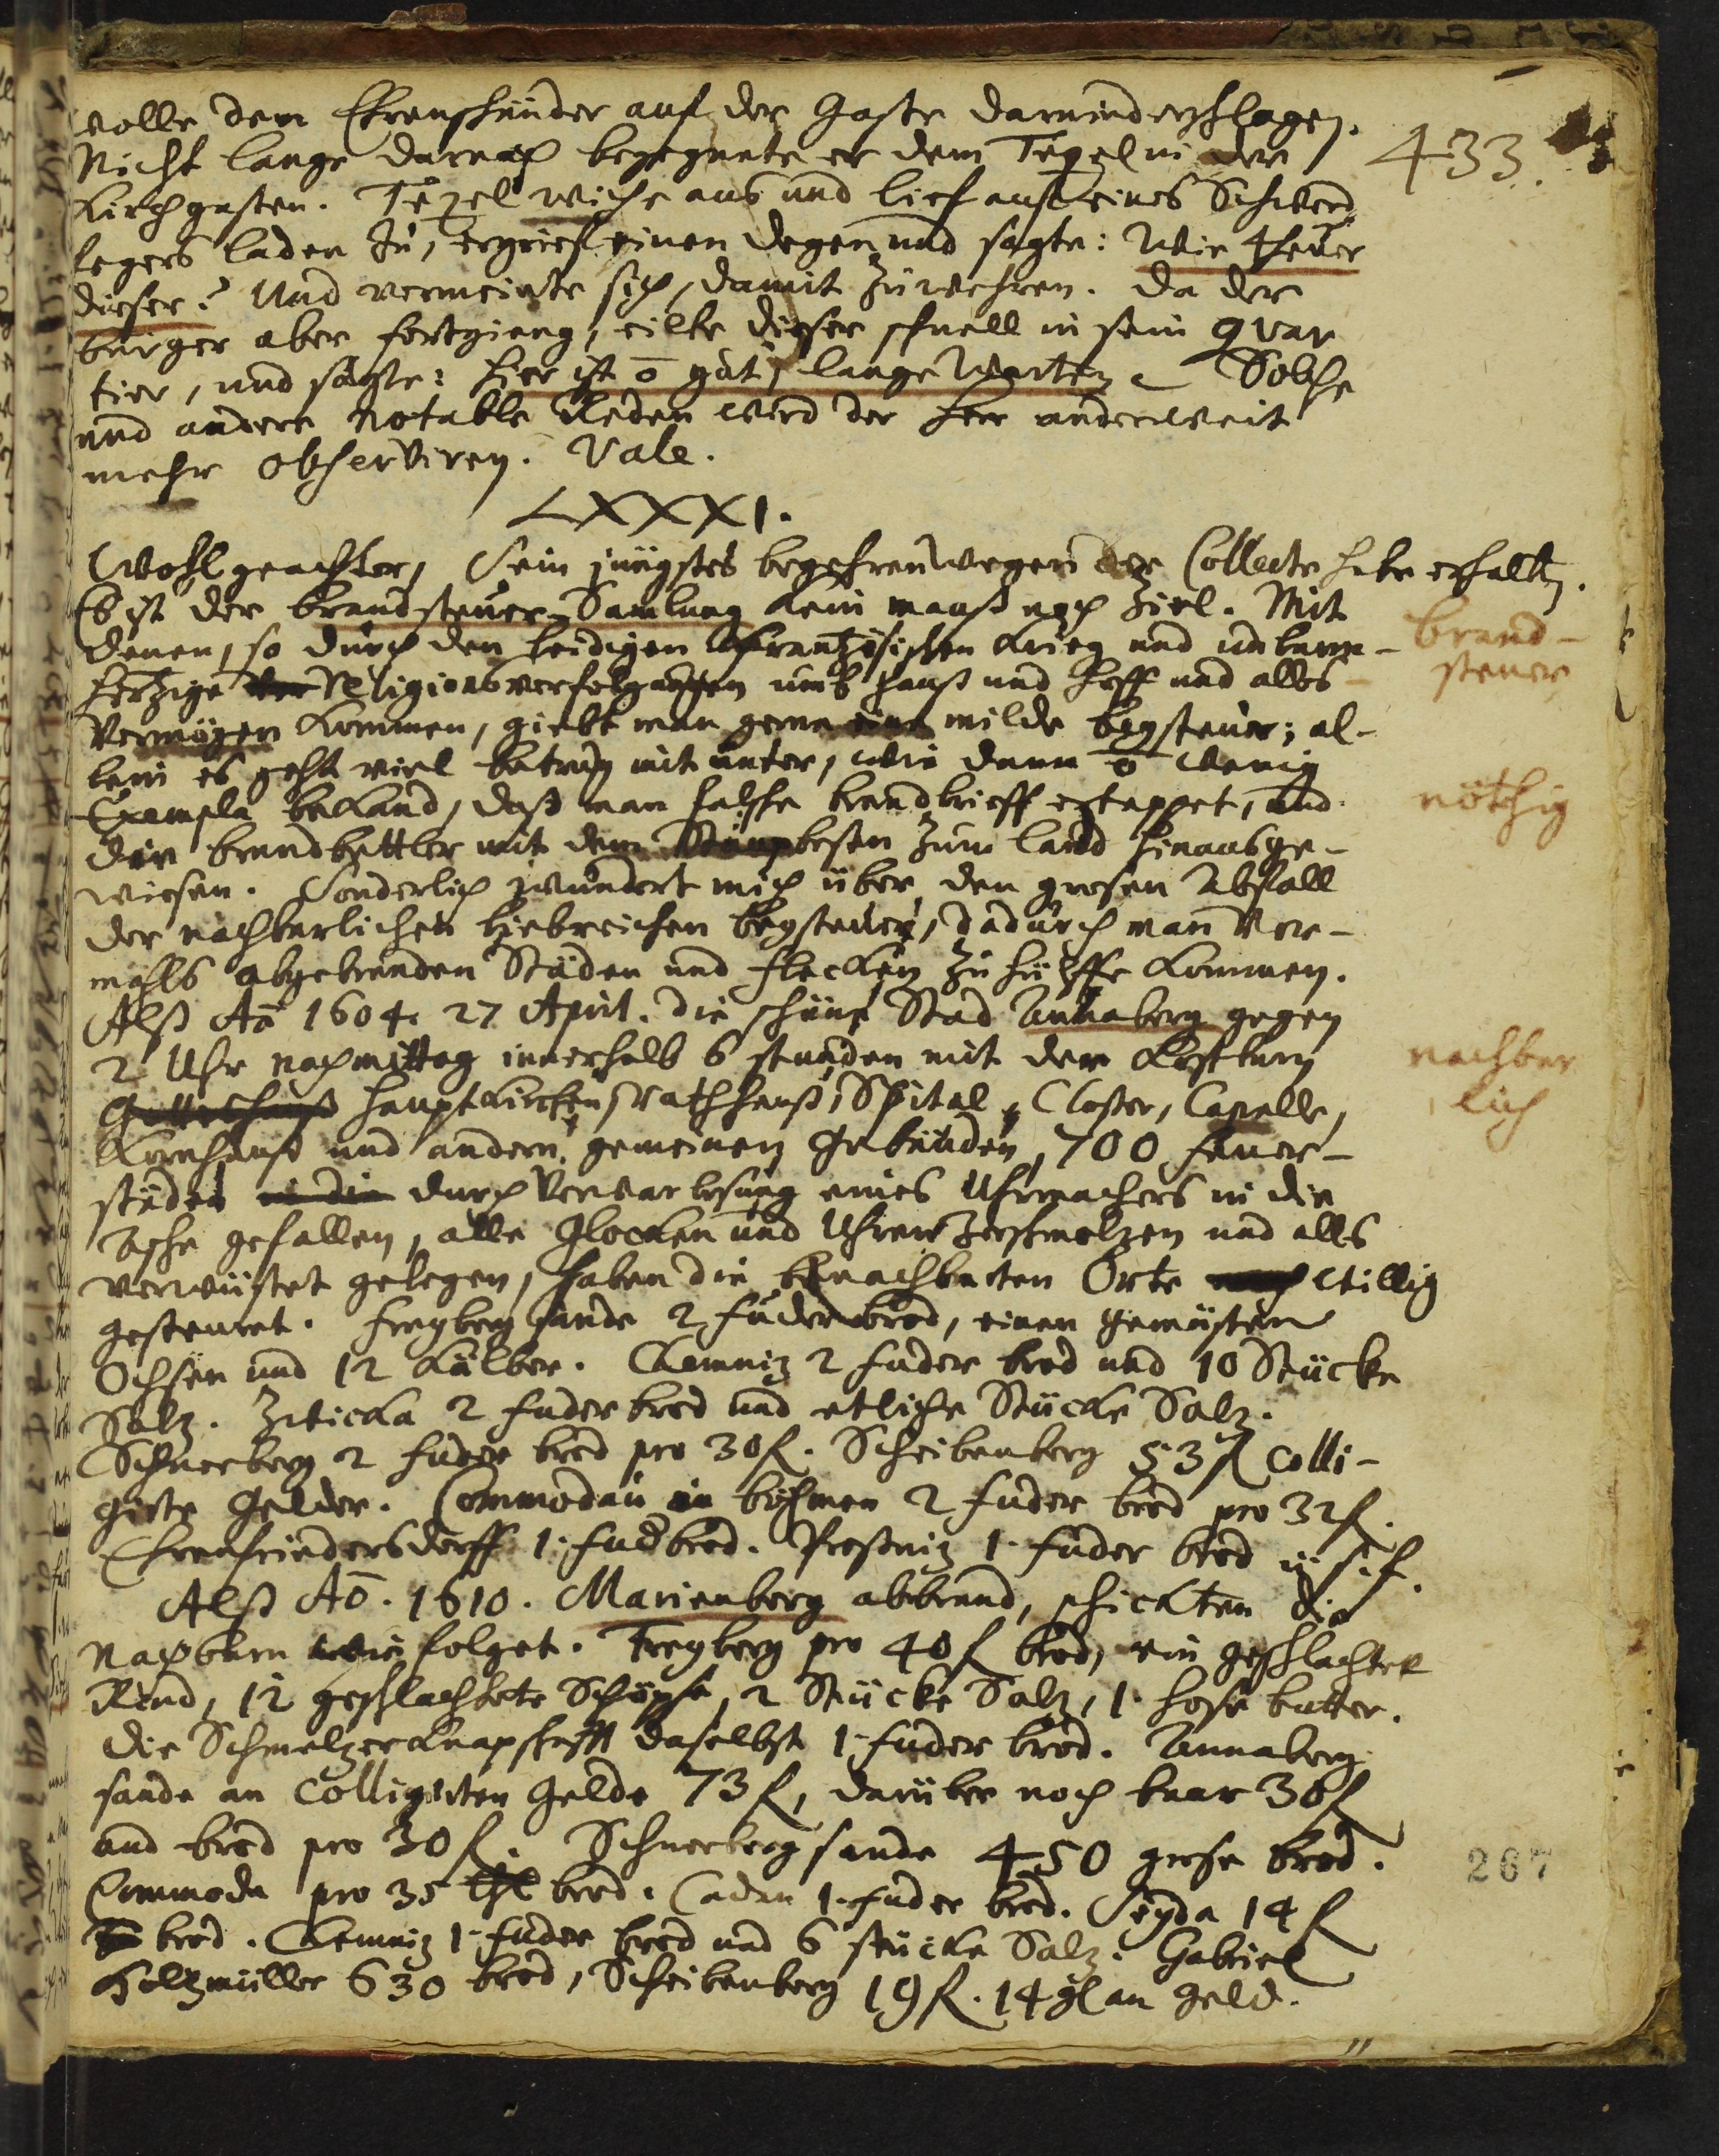 wolle dem Ehrenschänder auf der Gasse darniderschlagen.
433.
Nicht lange darnach begegnete er dem Tezel in der
Kirchgassen. Tezel wiche aus und lief auf eines Schwerd
fegers laden zu, ergrief einen degen und sagte: Wie theuer
dieser? Und vermeinte sich damit zuwehren. Da der
bürger aber fortgieng, eilte dieser schnell in sein quar
tier, und sagte: hier ist o gut lange warten Solche
und andere notable Reden wird der Herr anderweit
mehr observiren. Vale.
LXXXI.
Wohlgeachter, Sein jüngstes begehren wegen der Collecte habe erhalten.
Es ist der brandsteuer-Samlung kein maaß noch Ziel. Mit
denen, so durch den leidigen Frantzösischen Krieg und unbarm-
brand-
steuer
hertzige Religionsverfolgungen umb Hauß und Hoff und alles
Vermögen kommen, giebt man gerne milde beysteuer; al-
lein es geht viel betrug mit unter, wie denn o wenig
Exempla bekand, daß man falsche brandbrieff ertappet, und
nöthig
die brandbettler mit dem Staupbesen zum land hinausge-
wiesen. Sonderlich wundert mich über den grosen Abfall
der nachbarlichen liebreichen beysteuer, dadurch man vor-
mahls abgebranden Städen und Flecken zu hülffe kommen.
Alß Aō 1604. 27 April. die schöne Stad Annaberg gegen
2 Uhr nachmittag innerhalb 6 stunden mit der
nachbar
lich
Hauptkirchen, Rathhauß, Spital, Closter, Capelle,
Kornhauß und andern gemeinen Gebäuden, 700 feuer-
städen durch Verwarlosung eines Uhrmachers in die
Asche gefallen, alle Glocken und Uhren zerschmolzen und alls
verwüstet gelegen, haben die benachbarten Orte willig
gesteuret. Freyberg sande 2 fuder brod, einen gemästen
Ochsen und 12 Kälber. Chemniz 2 fuder brod und 10 Stücke
Salz. Zwicka 2 fuder brod und etliche Stücke Salz.
Schneeberg 2 fuder brod pro 30 fl. Scheibenberg 53 fl colli-
girte Gelder. Commodau in böhmen 2 fuder brod pro 32 fl.
Ehrenfriedersdorff 1. fud brod. Preßniz 1. fuder brod
Alß Aō. 1610. Marienberg abbrand, schickten die
Nachbarn wie folget. Freyberg pro 40 fl brod, ein geschlachtet
Rind, 12 geschlachtete Schöpse, 2 Stücke Salz, 1. Hose butter.
die Schmelzerknapschafft daselbst 1. fuder brod. Annaberg
sande an colligirten Gelde 73 fl, darüber noch baar 30 fl
und brod pro 30 fl. Schneeberg sande 450 grose brod.
267
Commoda pro 35 thl brod. Cadan 1. fuder brod. Seyda 14 fl
brod. Chemniz 1. fuder brod und 6 stücke Salz. Gabriel
Holzmüller 630 brod, Scheibenberg 19 fl. 14 gl an Geld.